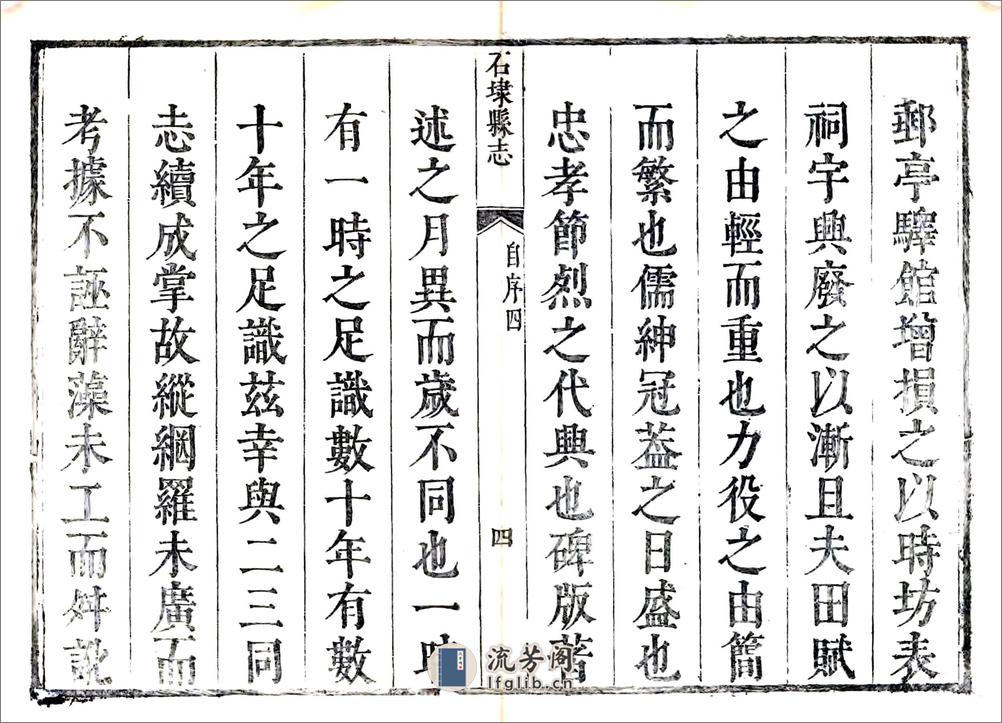 郵亭驛館增損之以時坊表
祠宇興廢之以漸且夫田賦
之由輕而重也力役之由簡
而繁也儒紳冠葢之日盛也
忠孝節烈之代興也碑版著
石埭縣志
自序四
四
述之月異而歲不同也一時
有一時之足識數十年有數
十年之足識茲幸與二三同
志續成掌故縱網羅未廣而
考據不誣辭藻未工而舛訛
流芳阁
lfglib.cn